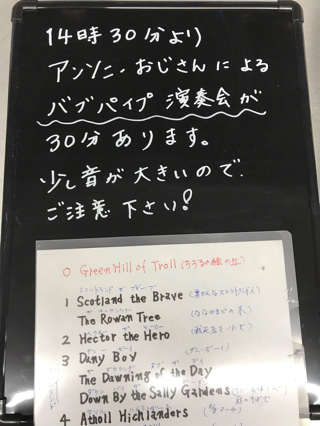 14時30分より
アンソニーおじさんによる
バブパイプ演奏会が
30分あります。
少し音が大きいので
ご注意下さい!
0 Green Hill of Troll
スコットランド ザ ブレーブ
1 Scotland the Brave
The Rowan Tree (ななかまどの木)
2 Hector the Hero
3 Dany Boy (ダニーボーイ)
The Dawning of the Day
Down By the Sally Gardens
4 Atholl Hichlanders